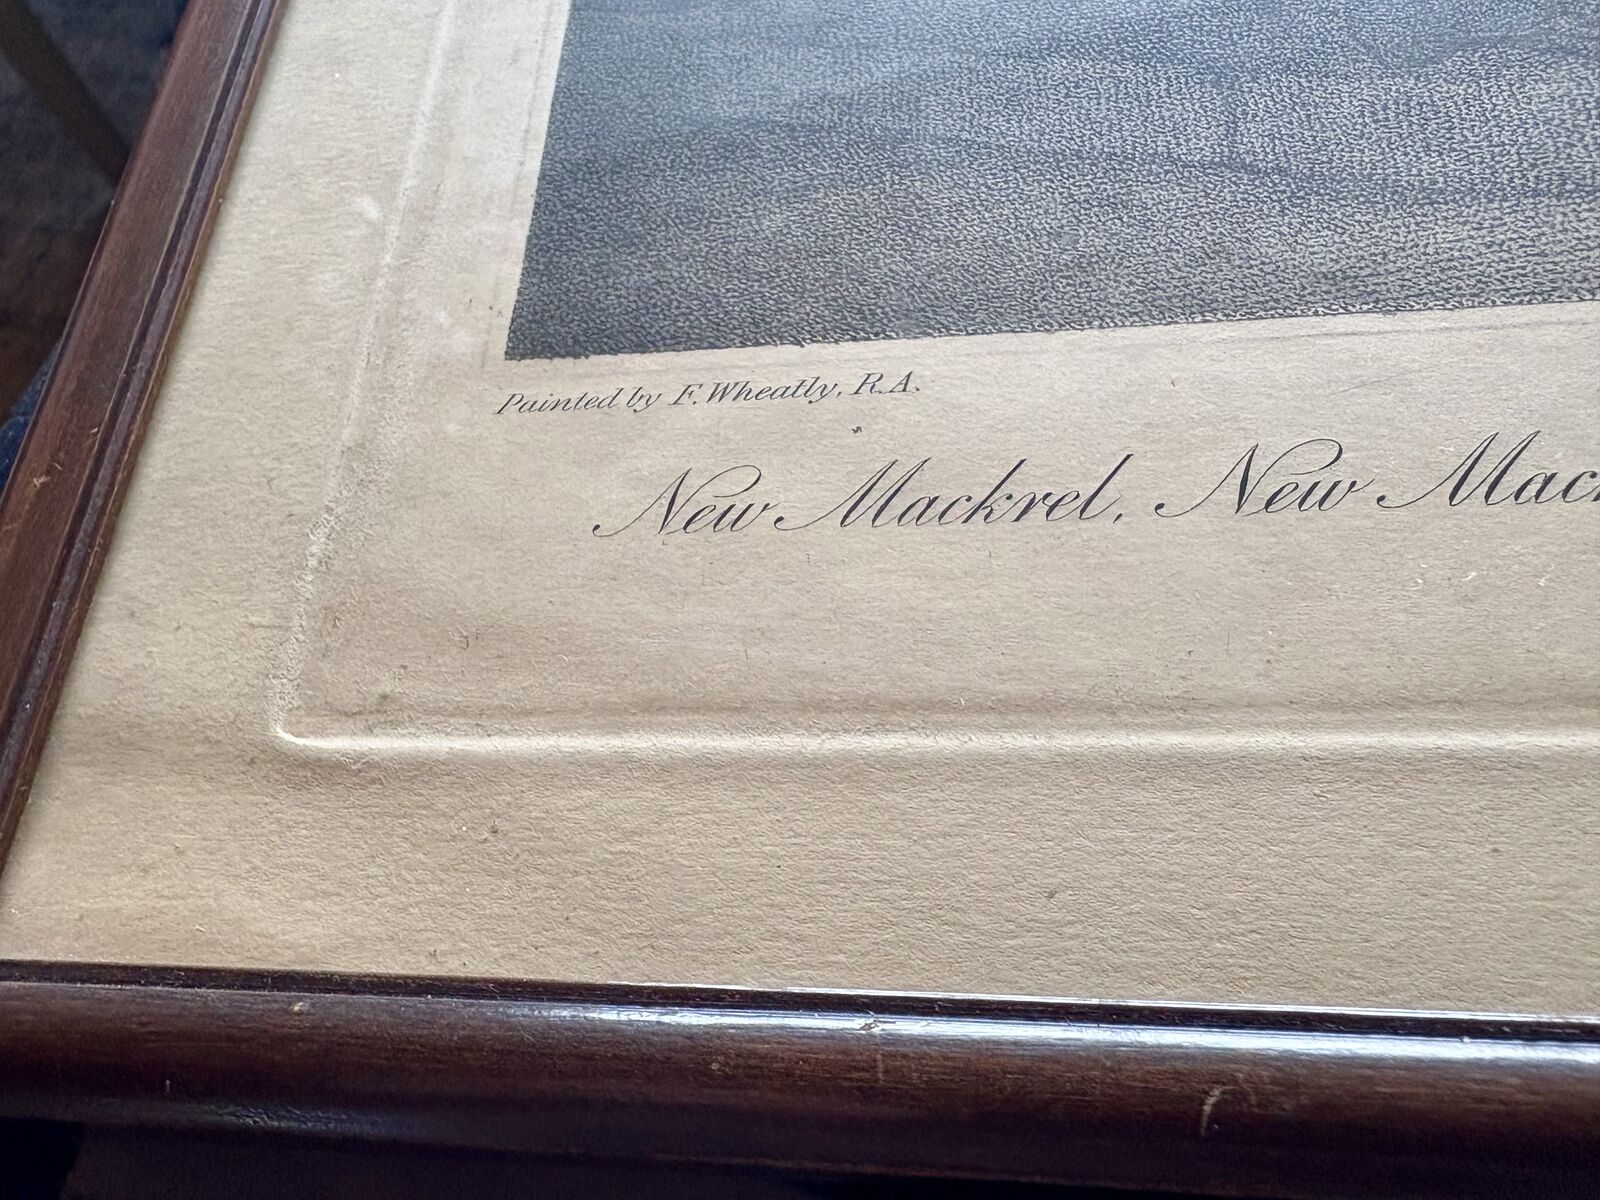 Painted by F. Wheatly, R.A.
New Mackrel, New Mac